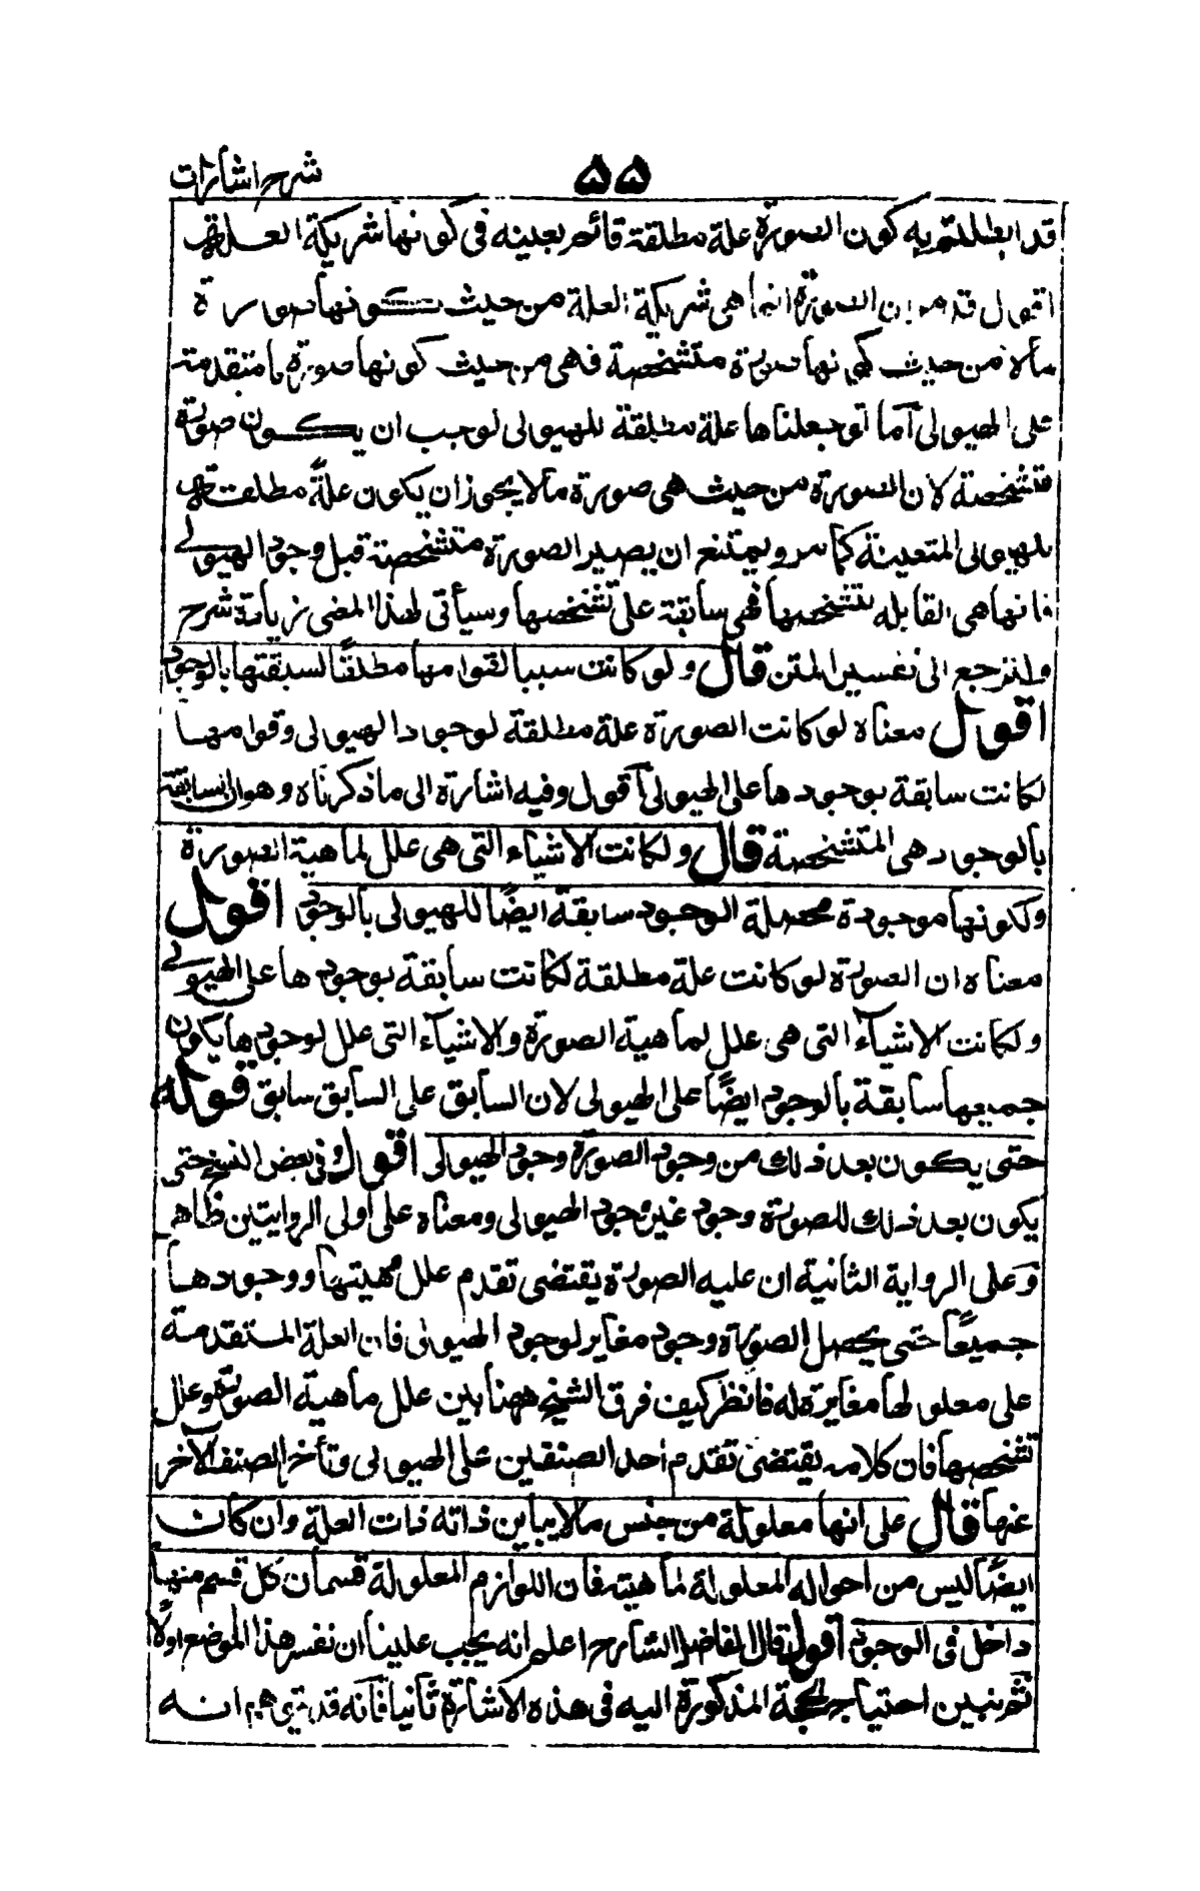 ۵۵ شرح اشارات
قد ابطلتم به كون الصورة علة مطلقة قائم بعينه فى كونها شريكة العلة
اقول قد مر ان الصورة انما هى شريكة العلة من حيث كونها صورة
ما لا من حيث كونها صورة متشخصة فهى من حيث كونها صورة ما متقدمة
على الهيولى اما لو جعلناها علة مطلقة للهيولى لوجب ان يكون صورة
متشخصة لان الصورة من حيث هى صورة ما لا يجوز ان يكون علةً مطلقة
للهيولى المتعينة كما مر ويمتنع ان يصير الصورة متشخصة قبل وجود الهيولى
فانها هى القابله لتشخصها فهى سابقة على تشخصها وسيأتى لهذا المضى زيادة شرح
ولنرجع الى تفسير المتن قال ولو كانت سببا لقوامها مطلقًا لسبقتها بالوجود
اقول معناه لو كانت الصورة علة مطلقة لوجود الهيولى وقوامها
لكانت سابقة بوجودها على الهيولى آقول وفيه اشارة الى ما ذكرناه وهو ان السابقة
بالوجود هى المتشخصة قال ولكانت الاشياء التى هى علل لماهية الصورة
ولكونها موجودة محصلة الوجود سابقة ايضًا للهيولى بالوجود اقول
معناه ان الصورة لو كانت علة مطلقة لكانت سابقة بوجودها على الهيولى
ولكانت الاشيآء التى هى علل لماهية الصورة والاشيآء التى علل لوجودها يكون
جميعها سابقة بالوجود ايضًا على الهيولى لان السابق على السابق سابق قوله
حتى يكون بعد ذلك من وجود الصورة وجود الهيولى اقول وفى بعض النسخ حتى
يكون بعد ذلك للصورة وجود غير وجود الهيولى ومعناه على اولى الروايتين ظاهر
وعلى الرواية الثانية ان علية الصورة يقتضى تقدم علل مهيتها ووجودها
جميعًا حتى يحصل الصورة وجود مغاير لوجود الهيولى فان العلة المتقدمة
على معلولها مغايرة له فانظر كيف فرق الشيخ ههنا بين علل ماهية الصورة وعلل
تشخصها فان كلامه يقتضى تقدم احد الصنفين على الهيولى وتأخر الصنف الآخر
عنها قال على انها معلولة من جنس ما لا يباين ذاته ذات العلة وان كانت
ايضًا ليس من احواله المعلولة لماهيته فان اللوازم المعلولة قسمان كل قسم منها
داخل فى الوجود اقول قال الفاضل الشارح اعلم انه يجب علينا ان نفسر هذا الموضع اولًا
ثم نبين احتياج الحجة المذكورة اليه فى هذه الاشارة ثانيا فانه قد انه